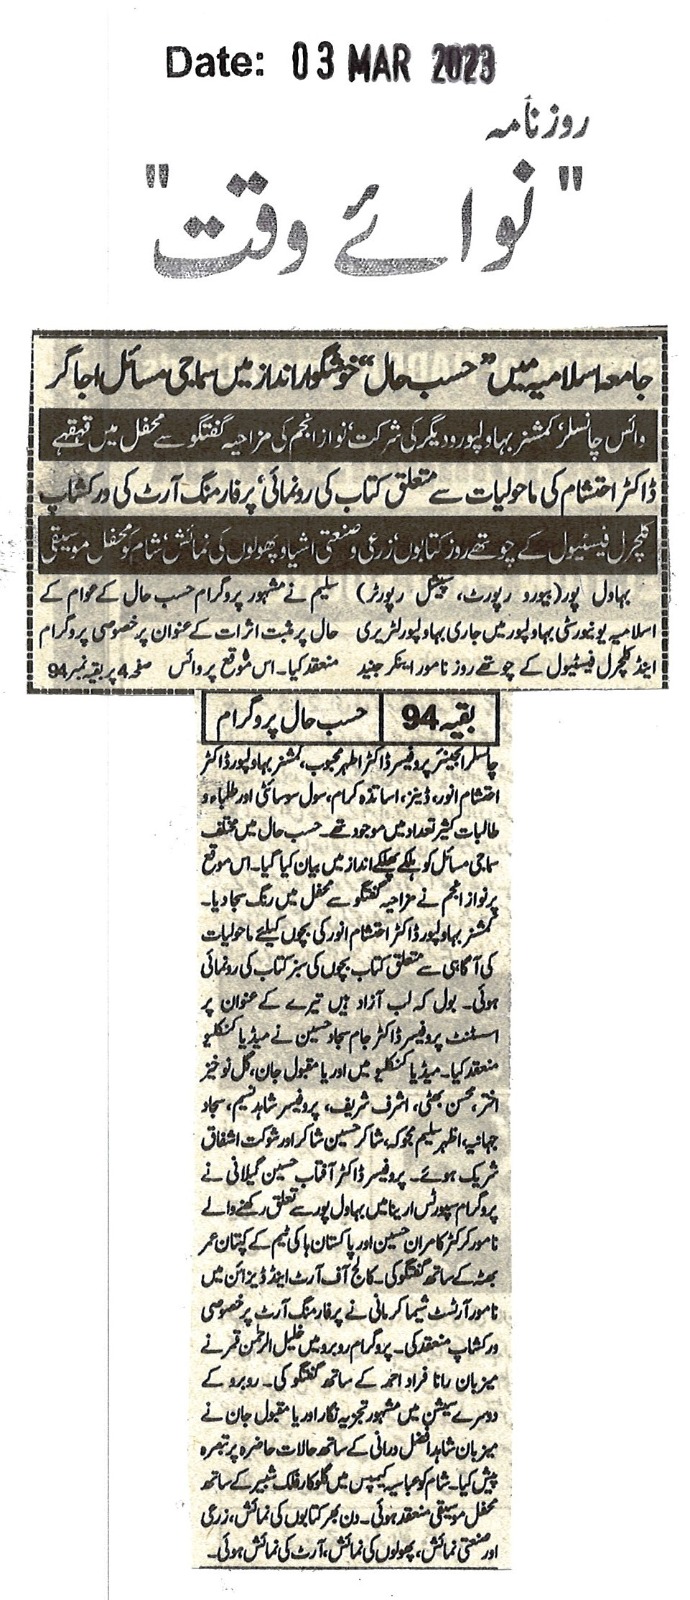 Date: 03 MAR 2023
روزنامہ
"نوائے وقت"
جامعہ اسلامیہ میں "حسب حال" خوشگوار انداز میں سماجی مسائل اجاگر
وائس چانسلر، کمشنر بہاولپور و دیگر کی شرکت، نواز انجم کی مزاحیہ گفتگو سے محفل میں قہقہے
ڈاکٹر احتشام کی ماحولیات سے متعلق کتاب کی رونمائی، پرفارمنگ آرٹ کی ورکشاپ
کلچرل فیسٹیول کے چوتھے روز کتابوں، زرعی و صنعتی اشیاء پھولوں کی نمائش، شام کو محفل موسیقی
بہاول پور (بیورو رپورٹ، سپیشل رپورٹر)
اسلامیہ یونیورسٹی بہاولپور میں جاری بہاولپور لٹریری
اینڈ کلچرل فیسٹیول کے چوتھے روز نامور اینکر جنید
سلیم نے مشہور پروگرام حسب حال کے عوام کے
حال پر مثبت اثرات کے عنوان پر خصوصی پروگرام
منعقد کیا۔ اس موقع پر وائس صفحہ 4 پر بقیہ نمبر 94
بقیہ 94 حسب حال پروگرام
چانسلر انجینئر پروفیسر ڈاکٹر اطہر محبوب، کمشنر بہاولپور ڈاکٹر
احتشام انور، ڈینز، اساتذہ کرام، سول سوسائٹی اور طلباء و
طالبات کثیر تعداد میں موجود تھے۔ حسب حال میں مختلف
سماجی مسائل کو ہلکے پھلکے انداز میں بیان کیا گیا۔ اس موقع
پر نواز انجم نے مزاحیہ گفتگو سے محفل میں رنگ سجا دیا۔
کمشنر بہاولپور ڈاکٹر احتشام انور کی بچوں کیلئے ماحولیات
کی آگاہی سے متعلق کتاب بچوں کی سبز کتاب کی رونمائی
ہوئی۔ بول کہ لب آزاد ہیں تیرے کے عنوان پر
اسسٹنٹ پروفیسر ڈاکٹر جام سجاد حسین نے میڈیا کنکلیو
منعقد کیا۔ میڈیا کنکلیو میں اوریا مقبول جان، گل نوخیز
اختر، محسن بھٹی، اشرف شریف، پروفیسر شاہد نسیم، سجاد
جہانیہ، اظہر سلیم مجوکہ، شاکر حسین شاکر اور شوکت اشفاق
شریک ہوئے۔ پروفیسر ڈاکٹر آفتاب حسین گیلانی نے
پروگرام سپورٹس ارینا میں بہاول پور سے تعلق رکھنے والے
نامور کرکٹر کامران حسین اور پاکستان ہاکی ٹیم کے کپتان عمر
بھٹہ کے ساتھ گفتگو کی۔ کالج آف آرٹ اینڈ ڈیزائن میں
نامور آرٹسٹ شیما کرمانی نے پرفارمنگ آرٹ پر خصوصی
ورکشاپ منعقد کی۔ پروگرام روبرو میں خلیل الرحمن قمر نے
میزبان رانا فراد احمد کے ساتھ گفتگو کی۔ روبرو کے
دوسرے سیشن میں مشہور تجزیہ نگار اوریا مقبول جان نے
میزبان شاہد افضل درانی کے ساتھ حالات حاضرہ پر تبصرہ
پیش کیا۔ شام کو عباسیہ کیمپس میں گلوکار فلک شبیر کے ساتھ
محفل موسیقی منعقد ہوئی۔ دن بھر کتابوں کی نمائش، زرعی
اور صنعتی نمائش، پھولوں کی نمائش، آرٹ کی نمائش ہوئی۔